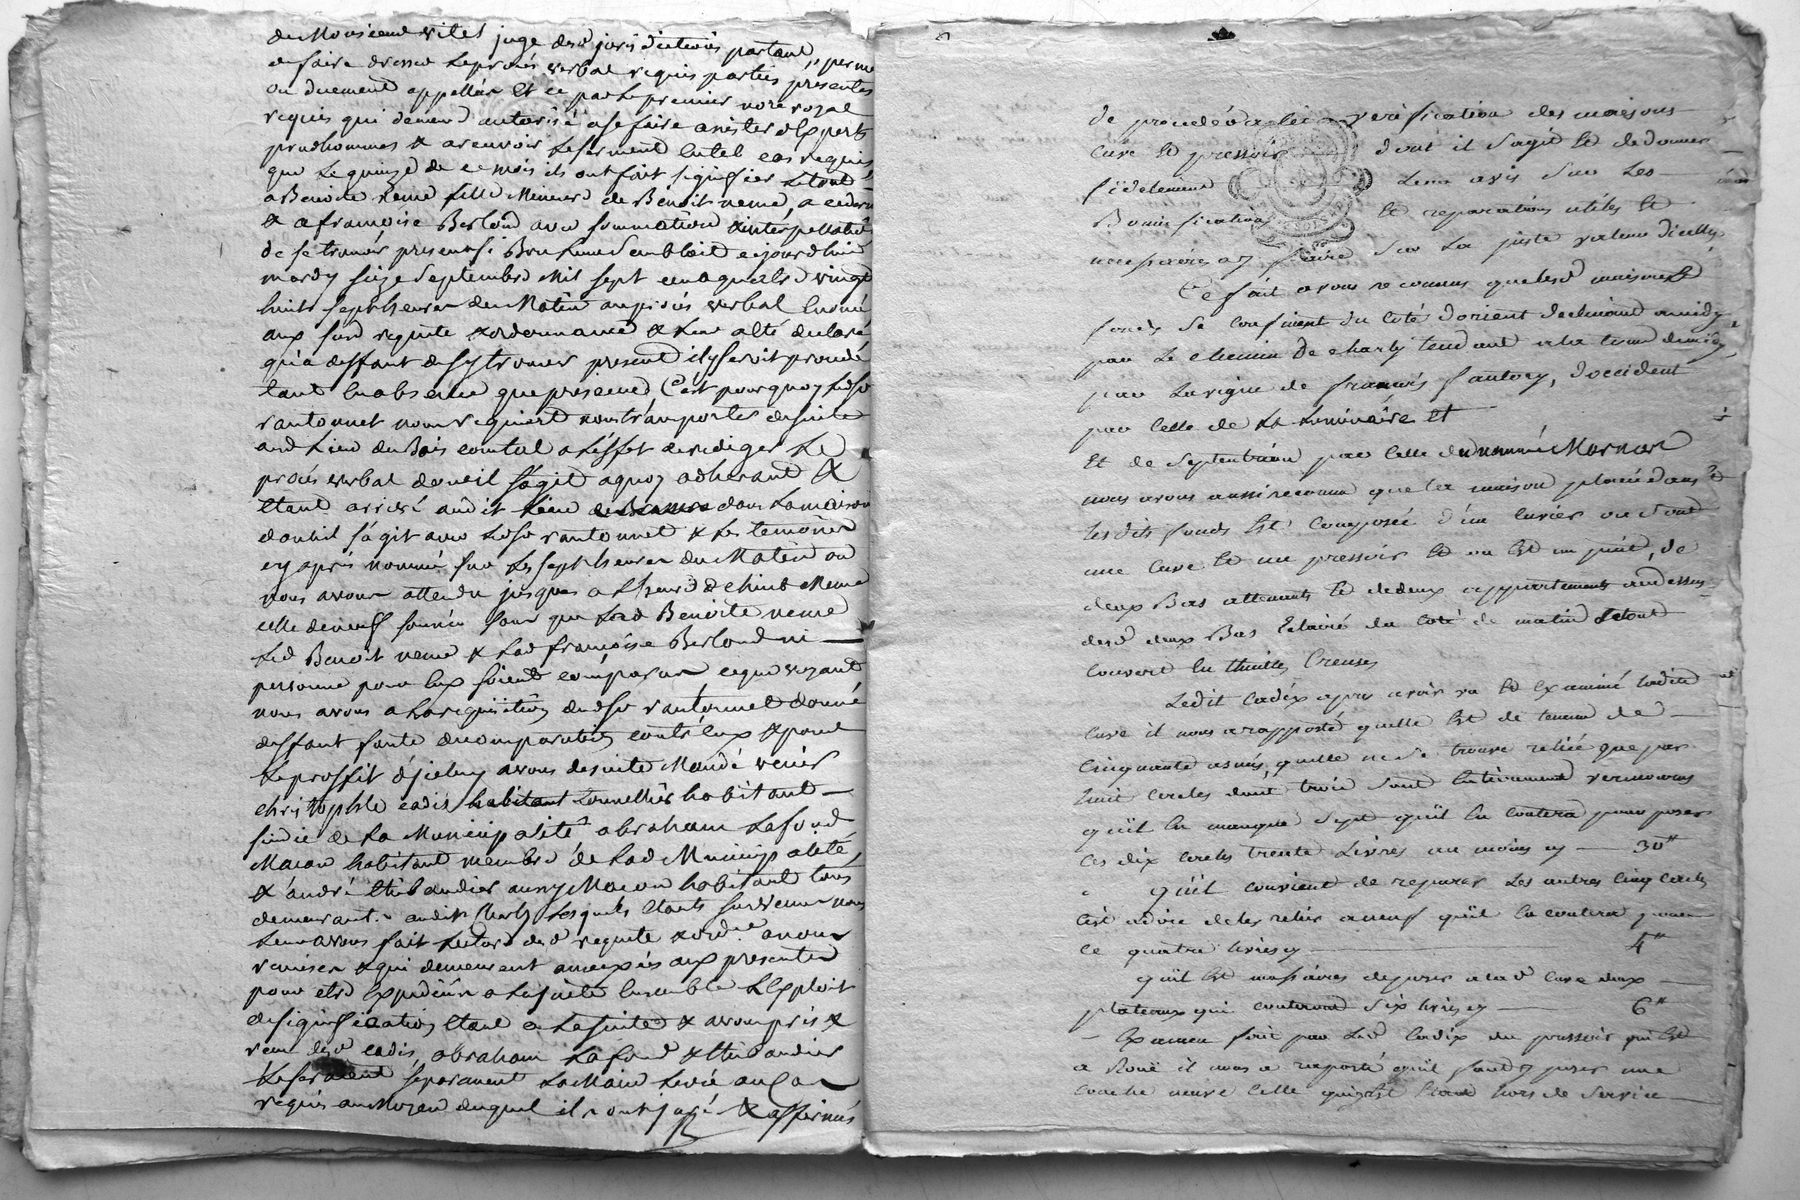 de Monsieur vitet juge desd jurisdictions partant, permis
de faire dresser le procès verbal requis parties presentes
ou duement appellées Et ce par le premier nore royal
requis qui demeure autorisé a se faire assister d'Experts
prudhommes & a recevoir le serment en tel cas requis
que le quinze de ce mois ils ont fait signifier le tout
a Benoite neme fille Mineure de Benoit neme, a ce dernier
& a françoise Berloud avec sommation & interpellation
de se trouver presents si Bon leur sembloit ce jourd'hui
mardy seize septembre mil sept cent quatre vingt
huit sept heures du Matin au procès verbal Enoncé
aux susd requete & ordonnance & leur a été declaré
qu'a deffaut de s'y trouver present il y seroit procedé
tant En absence que presence, C'est pourquoy led sr
rantonnet nous requiert nous transporter de suite
aud Lieu du Bois comtal a L'effet de rediger Le
procès verbal dont il s'agit a quoy adherant &
Etant arrivé audit Lieu dans la maison
dont il s'agit avec led sr rantonnet & les temoins
cy après nommé sur les sept heures du Matin ou
nous avons attendu jusques a l'heure de huit Meme
celle de neuf sonnée sans que lad Benoite neme
led Benoit neme & lad françoise Berloud ni
personne pour Eux soient comparus ce que voyant
nous avons a la requisition dud sr rantonnet donné
deffaut faute de comparution contr'eux & pour
le proffit d'jceluy avons de suite Mandé venir
christophle cadix habitant tonnellier habitant
sindic de la Municipalité abraham Lafond
Macon habitant membre de lad Municipalité
& andré thibaudier aussy Macon habitant tous
demeurant audit Charly Lesquels Etants survenus nous
Leur avons fait lecture desd requete & ordce a nous
remises & qui demeurent annexées aux presentes
pour etre Expediées a la suite Ensemble L'Exploit
de signification Etant a la suite & avons pris &
recu desd cadix, abraham Lafond & thibaudier
le serment séparement la Main Levée au cas
requis au Moyen duquel ils ont juré & affirmés
de procedér a la verification des maisons
cuve Et pressoir dont il s'agit Et de donner
fidelement Leur avis sur Les
Bonnifications Et reparations utiles Et
necessaires a y faire sur La juste valeur d'icelles
Ce fait avons reconnu que lesd maison Et
fonds se confinent du coté d'orient declinant a midy
par Le chemin de charly tendant a la tour de midy
par La vigne de francois fautoy, d'occident
par Celle de La Luminaire Et
Et de septentrion par Celle du nommé Mornard
nous avons aussi reconnu que la maison placée dans
lesdits fonds Est Composée d'un Cuvier ou sont
une Cuve Et un pressoir Et ou Est un puit, de
deux Bas attenants Et de deux appartements au dessus
desd deux Bas Eclairé du coté de matin Le tout
Couvert En thuilles Creuses
Ledit Cadix apres avoir vu Et Examiné ladite
Cuve il nous a rapporté qu'elle Est de teneur de
Cinquante asnés, quelle ne se trouve reliée que par
huit cercles dont trois sont Entierement vermoulus
qu'il En manque sept qu'il En coutera pour poser
Ces dix cercles trente Livres au moins cy — 30"
qu'il convient de reparer Les autres Cinq Cercles
C'est a dire de les relier a neuf qu'il En coutera pour
ce quatre livres cy — 4"
qu'il Est necessaires de poser a lad Cuve deux
plateaux qui couteront six livres cy — 6"
Examen fait par Led Cadix du pressoir qui Est
a Roüe il nous a raporté qu'il faud y poser une
couche neuve Celle qui y est Etant hors de service